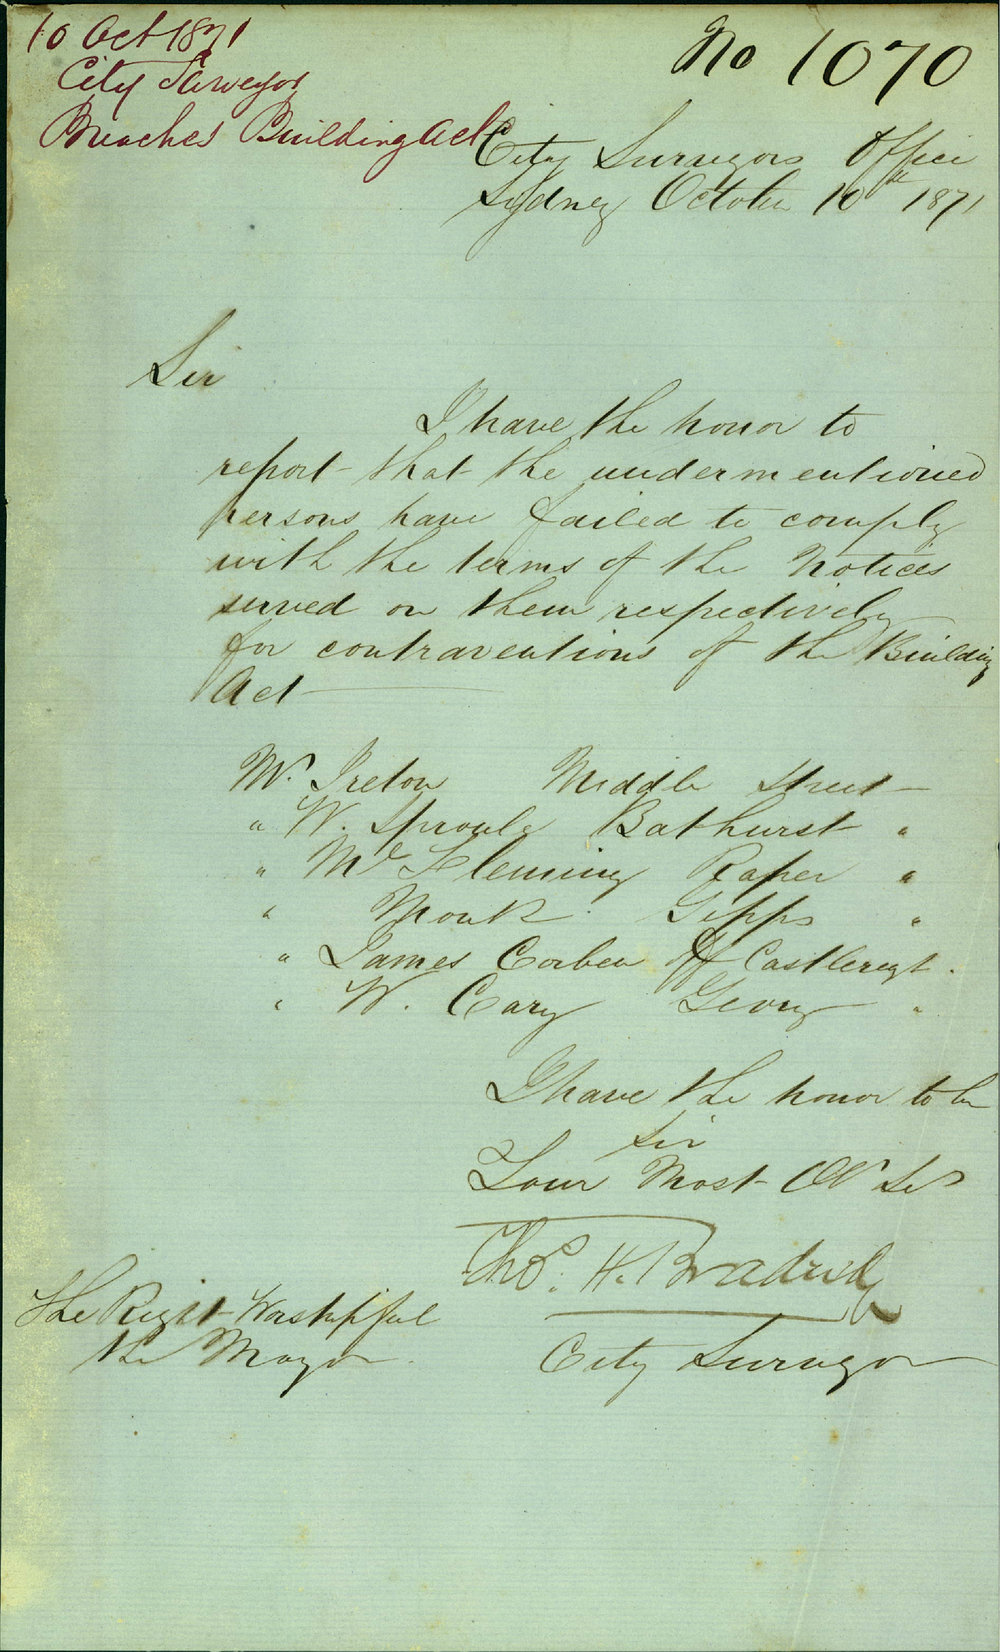 10 Oct 1871
City Surveyor
Breaches Building Act
No 1070
City Surveyors Office
Sydney October 10th 1871
Sir
I have the honor to
report that the undermentioned
persons have failed to comply
with the terms of the Notices
served on them respectively
for contraventions of the Building
Act
Mr. Ireton Middle Street
" W. Sproule Bathurst "
" Mc Fleming Raper "
" Monk Gipps "
" James Corben Off Castlereagh "
" W. Cary George "
I have the honor to be
Sir
Your Most Obt Sert
Thos. H. Bradridge
City Surveyor
The Right Worshipful
the Mayor